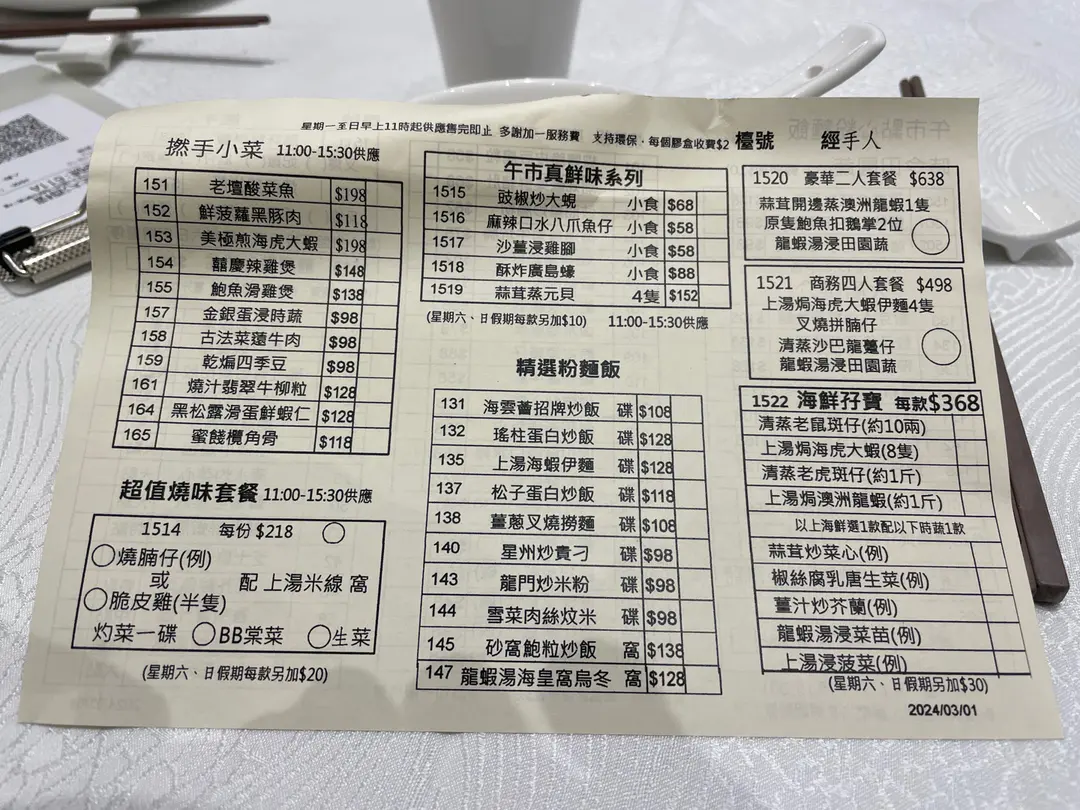 星期一至日早上11時起供應售完即止 多謝加一服務費 支持環保，每個膠盒收費$2 檯號 經手人
撚手小菜 11:00-15:30供應
151 老壇酸菜魚 $198
152 鮮菠蘿黑豚肉 $118
153 美極煎海虎大蝦 $198
154 囍慶辣雞煲 $148
155 鮑魚滑雞煲 $138
157 金銀蛋浸時蔬 $98
158 古法菜薳牛肉 $98
159 乾煸四季豆 $98
161 燒汁翡翠牛柳粒 $128
164 黑松露滑蛋鮮蝦仁 $128
165 蜜餞欖角骨 $118
超值燒味套餐 11:00-15:30供應
1514 每份 $218
燒腩仔(例)
或
脆皮雞(半隻)
配 上湯米線 窩
灼菜一碟 BB棠菜 生菜
(星期六、日假期每款另加$20)
午市真鮮味系列
1515 豉椒炒大蜆 小食 $68
1516 麻辣口水八爪魚仔 小食 $58
1517 沙薑浸雞腳 小食 $58
1518 酥炸廣島蠔 小食 $88
1519 蒜茸蒸元貝 4隻 $152
(星期六、日假期每款另加$10) 11:00-15:30供應
精選粉麵飯
131 海雲薈招牌炒飯 碟 $108
132 瑤柱蛋白炒飯 碟 $128
135 上湯海蝦伊麵 碟 $128
137 松子蛋白炒飯 碟 $118
138 薑蔥叉燒撈麵 碟 $108
140 星州炒貴刁 碟 $98
143 龍門炒米粉 碟 $98
144 雪菜肉絲炆米 碟 $98
145 砂窩鮑粒炒飯 窩 $138
147 龍蝦湯海皇窩烏冬 窩 $128
1520 豪華二人套餐 $638
蒜茸開邊蒸澳洲龍蝦1隻
原隻鮑魚扣鵝掌2位
龍蝦湯浸田園蔬
1521 商務四人套餐 $498
上湯焗海虎大蝦伊麵4隻
叉燒拼腩仔
清蒸沙巴龍躉仔
龍蝦湯浸田園蔬
1522 海鮮孖寶 每款$368
清蒸老鼠斑仔(約10兩)
上湯焗海虎大蝦(8隻)
清蒸老虎斑仔(約1斤)
上湯焗澳洲龍蝦(約1斤)
以上海鮮選1款配以下時蔬1款
蒜茸炒菜心(例)
椒絲腐乳唐生菜(例)
薑汁炒芥蘭(例)
龍蝦湯浸菜苗(例)
上湯浸菠菜(例)
(星期六、日假期另加$30)
2024/03/01